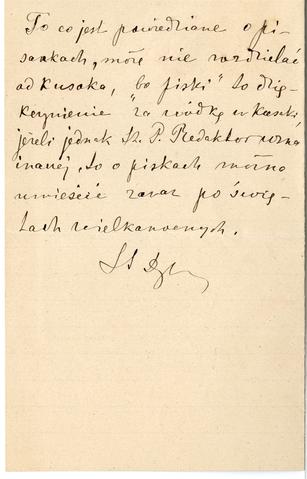 To co jest powiedziane o pi-
sankach, może nie rozdzielać
od Kusaka, bo piski" to dzię-
kczynienie "za wódkę w
jeżeli jednak Sz. P. Redaktor uzna
inaczej, to o piskach można
umieścić zaraz po świę-
tach wielkanocnych.